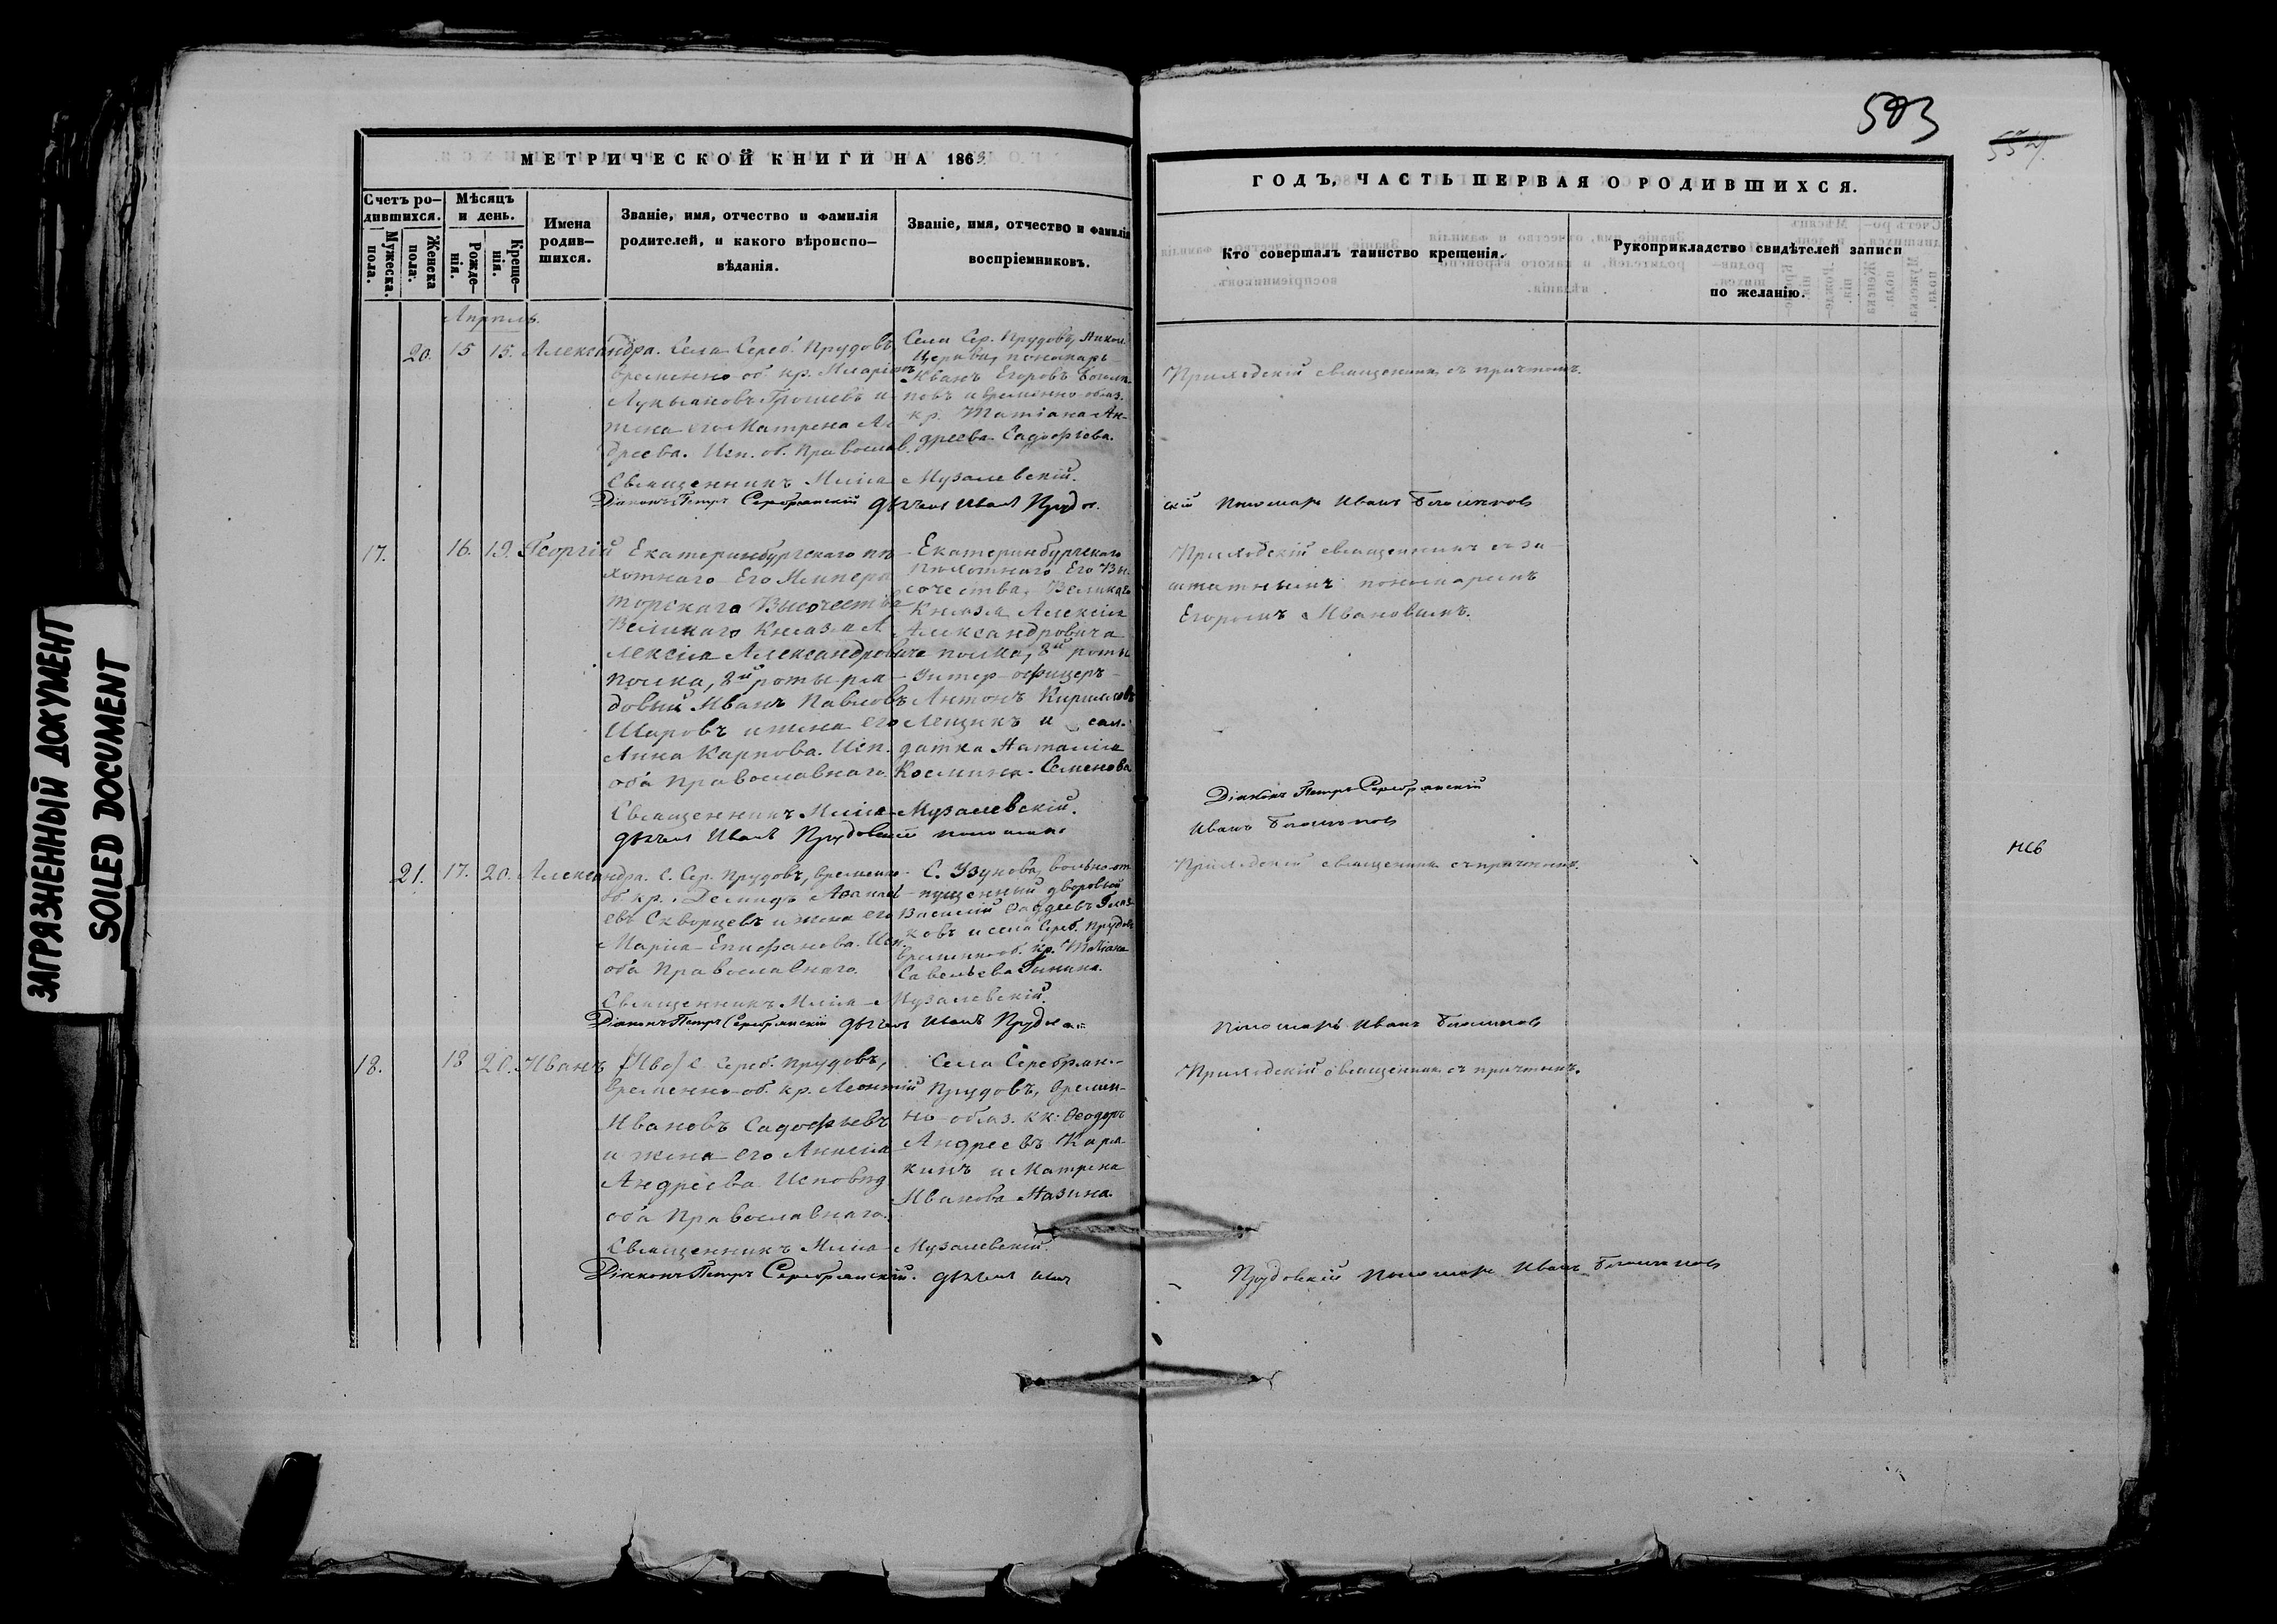 ЗАГРЯЗНЕННЫЙ ДОКУМЕНТ
SOILED DOCUMENT
МЕТРИЧЕСКОЙ КНИГИ НА 1863
Счетъ родившихся.
Мужеска пола.
Женска пола.
Мѣсяцъ и день.
Рожденія.
Крещенія.
Имена родившихся.
Званіе, имя, отчество и фамилія
родителей, и какого вѣроиспо-
вѣданія.
Званіе, имя, отчество и фамилія
воспріемниковъ.
Апрѣль.
20. 15 15. Александра.
Села Сереб. Прудовъ
временно-об. кр. Иларіонъ
Лукьяновъ Грошевъ и
жена его Матрена Ан
дреева. Исп. об. Православ.
Села Сер. Прудовъ, Никол.
Церкви, пономарь
Иванъ Егоровъ
новъ и временно-обяз.
кр. Татіана Ан-
дреева Садофіева.
Священникъ Илія Музалевскій.
Діаконъ Петръ Серебрянскій дьячекъ Иванъ Прудов
17. 16. 19. Георгій
Екатеринбургскаго пѣ-
хотнаго Его Импера
торскаго Высочества
Великаго Князя А
лексія Александровича
полка, 8й роты ря-
довый Иванъ Павловъ
Шаровъ и жена его
Анна Карпова. Исп.
оба Православнаго.
Екатеринбургскаго
пѣхотнаго Его Вы
сочества, Великаго
Князя Алексія
Александровича
полка, 8й роты
Унтер-офицеръ
Антонъ Кирилловъ
Лещикъ и сол-
датка Наталія
Космина Семенова
Священникъ Илія Музалевскій.
дьячекъ Иванъ Прудовскій пономарь
21. 17. 20. Александра.
С. Сер. Прудовъ, временно
об. кр. Демидъ Аѳанасі-
евъ Скворцевъ и жена его
Марія Епифанова. Исп.
оба Православнаго.
С. Узунова, вольно-от
пущенный дворовый
Василій Ѳаддеевъ
ковъ и села Сереб. Прудовъ
временно об. кр. Татіана
Савельева Гынина.
Священникъ Илія Музалевскій.
Діаконъ Петръ Серебрянскій дьячекъ Иванъ Прудов
18. 18 20. Иванъ
С. Сереб. Прудовъ,
временно-об. кр. Леонтій
Ивановъ Садофьевъ
и жена его Анисія
Андреева Исповѣд
оба Православнаго.
Села Серебрян.
Прудовъ, времен-
но обяз. кк: Ѳеодоръ
Андреевъ Каря-
кинъ и Матрена
Иванова Мазина.
Священникъ Илія Музалевскій.
Діаконъ Петръ Серебрянскій. дьячекъ Иван
503
ГОДЪ, ЧАСТЬ ПЕРВАЯ О РОДИВШИХСЯ.
Кто совершалъ таинство крещенія.
Рукоприкладство свидѣтелей записи
по желанію.
Приходскій священникъ съ причтомъ.
скій Пономарь Иванъ
Приходскій священникъ съ за-
штатнымъ пономаремъ
Егоромъ Ивановымъ.
Діаконъ Петръ Серебрянскій
Иванъ
Приходскій священникъ съ причтомъ.
Пономарь Иванъ
Приходскій священникъ съ причтомъ.
Прудовскій Пономарь Иванъ